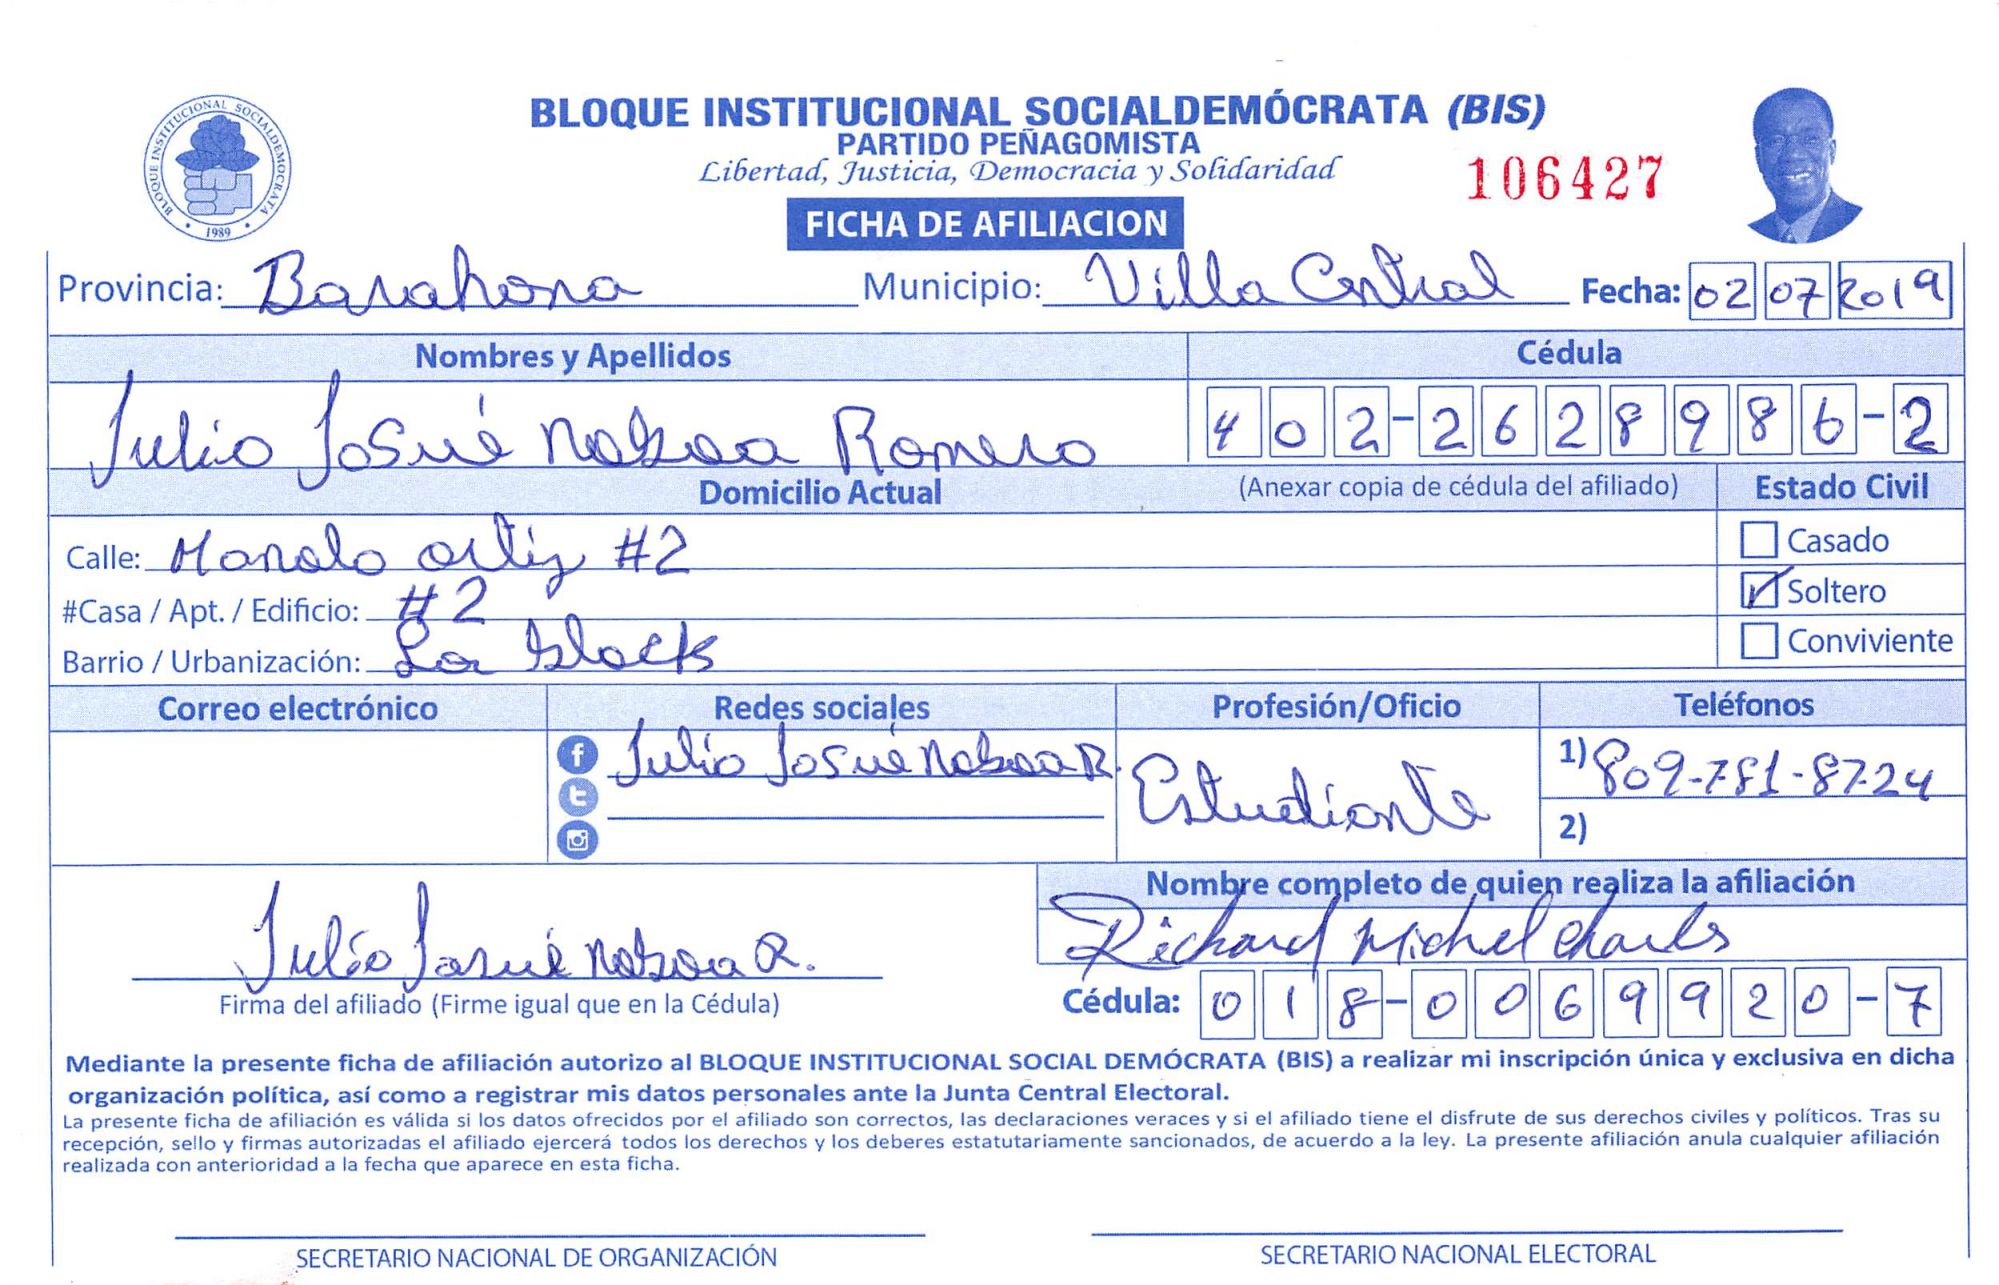 BLOQUE INSTITUCIONAL SOCIALDEMOCRATA
1989
BLOQUE INSTITUCIONAL SOCIALDEMÓCRATA (BIS)
PARTIDO PEÑAGOMISTA
Libertad, Justicia, Democracia y Solidaridad
106427
FICHA DE AFILIACION
Provincia: Barahona Municipio: Villa Central Fecha: 02 07 2019
Nombres y Apellidos Cédula
Julio Josué Noboa Romero 402-2628986-2
Domicilio Actual (Anexar copia de cédula del afiliado) Estado Civil
Calle: Manolo Ortiz #2 Casado
#Casa / Apt. / Edificio: #2 Soltero
Barrio / Urbanización: La block Conviviente
Correo electrónico Redes sociales Profesión/Oficio Teléfonos
Julio Josué Noboa R. Estudiante 1) 809-781-8724
2)
Nombre completo de quien realiza la afiliación
Julio Josué Noboa R. Richard Michel Charles
Firma del afiliado (Firme igual que en la Cédula) Cédula: 018-0069920-7
Mediante la presente ficha de afiliación autorizo al BLOQUE INSTITUCIONAL SOCIAL DEMÓCRATA (BIS) a realizar mi inscripción única y exclusiva en dicha
organización política, así como a registrar mis datos personales ante la Junta Central Electoral.
La presente ficha de afiliación es válida si los datos ofrecidos por el afiliado son correctos, las declaraciones veraces y si el afiliado tiene el disfrute de sus derechos civiles y políticos. Tras su
recepción, sello y firmas autorizadas el afiliado ejercerá todos los derechos y los deberes estatutariamente sancionados, de acuerdo a la ley. La presente afiliación anula cualquier afiliación
realizada con anterioridad a la fecha que aparece en esta ficha.
SECRETARIO NACIONAL DE ORGANIZACIÓN SECRETARIO NACIONAL ELECTORAL